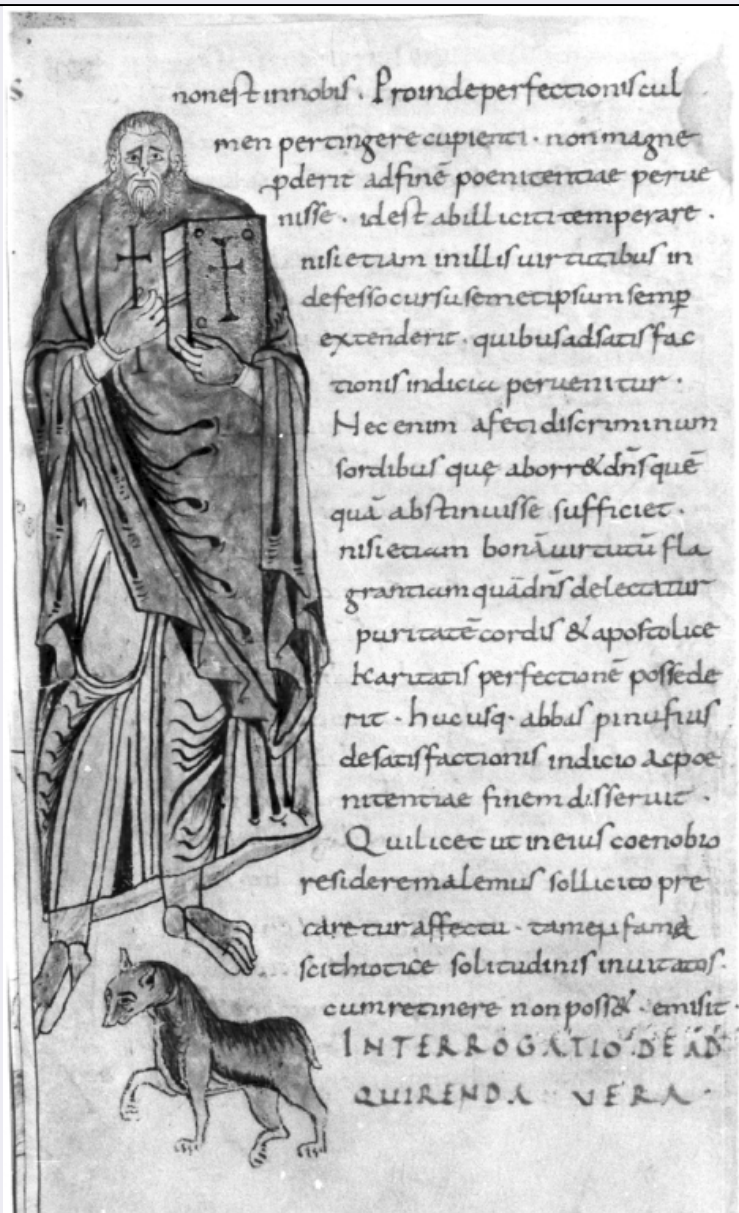 non est in nobis · Proinde perfectionis cul
men pertingere cupienti · non magne
pderit ad finē poenitentiae perue
nisse · id est ab illicitis temperare ·
nisi etiam in illis uirtutibus in
defesso cursu semet ipsum semꝑ
extenderit · quibus ad satisfac
tionis indicia peruenitur ·
Nec enim a feti discriminum
sordibus quę aborr& dn̄s quē
quā abstinuisse sufficiet ·
nisi etiam bonā uirtutū fla
grantiam quā dn̄s delectatur
puritatē cordis & apostolice
karitatis perfectionē possede
rit · hucusq· abbas pinufius
de satisfactionis indicio ac poe
nitentiae finem disseruit ·
Qui licet ut in eius coenobio
residere malemus sollicito pre
caretur affectu · tamen fama
scithiotice solitudinis inuitatos ·
cum retinere non poss& · emisit ·
INTERROGATIO DE AD
QUIRENDA VERA ·